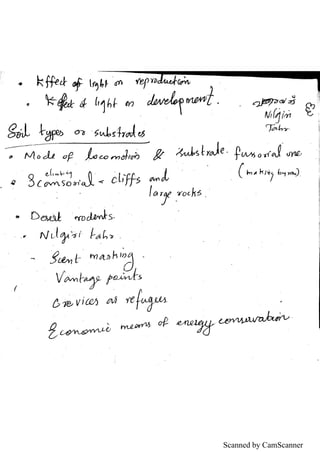 • Effect of light on reproduction
• Effect of light on development.
Nilgiri
Tahr
Soil types or substrates
• Mode of locomotion & substrate. fusorial one
climbing
• Scansorial - cliffs and
large rocks.
• Desert rodents.
• Nilgiri tahr
- Scent marking
Vantage points
Crevices as refuges
Economic means of energy conservation
Scanned by CamScanner